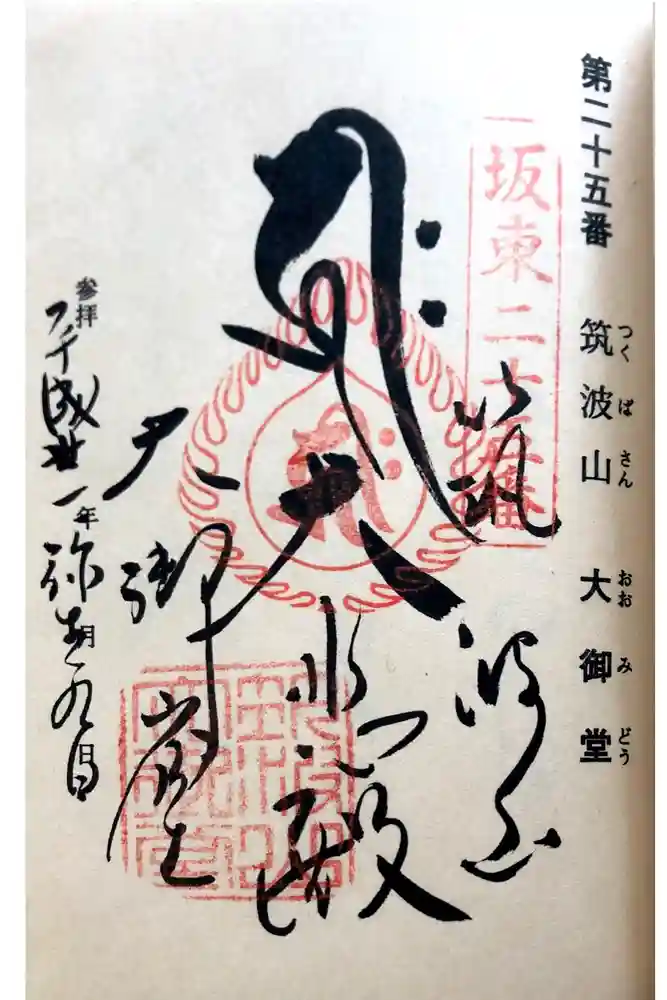 第二十五番 筑波山 大御堂
つくばさん おおみどう
坂東二十五番
筑波山
大悲殿
大御堂
参拝
平成廿一年弥生月九日